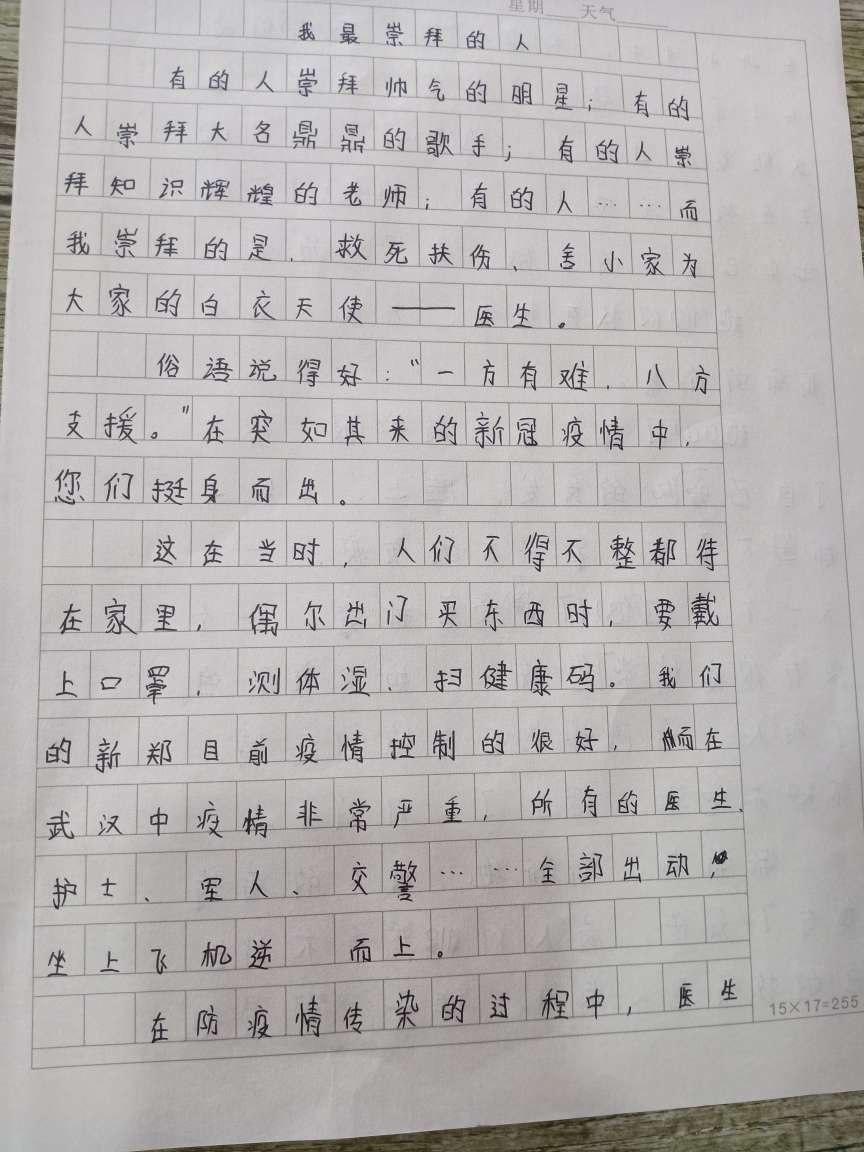 星期 天气
我最崇拜的人
有的人崇拜帅气的明星；有的
人崇拜大名鼎鼎的歌手；有的人崇
拜知识辉煌的老师；有的人……而
我崇拜的是、救死扶伤、舍小家为
大家的白衣天使——医生。
俗语说得好：“一方有难，八方
支援。”在突如其来的新冠疫情中，
您们挺身而出。
这在当时，人们不得不整都待
在家里，偶尔出门买东西时，要戴
上口罩，测体湿、扫健康码。我们
的新郑目前疫情控制的很好，而在
武汉中疫情非常严重，所有的医生、
护士、军人、交警……全部出动，
坐上飞机逆而上。
在防疫情传染的过程中，医生
15×17=255